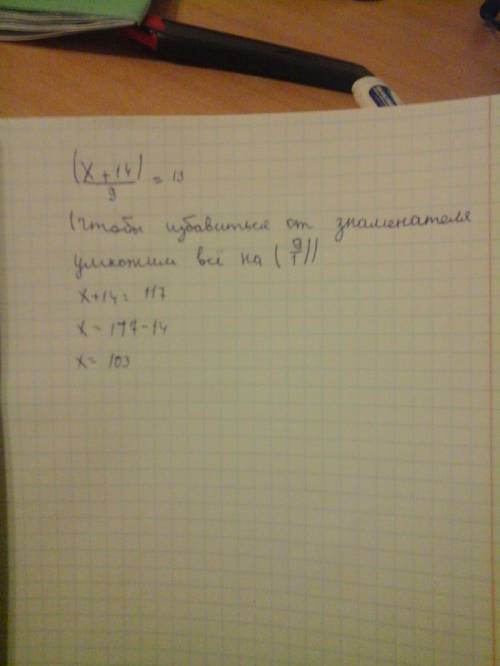 (x + 14)
9
= 13
(Чтобы избавиться от знаменателя
умножим всё на (9/1))
x+14 = 117
x = 117-14
x = 103